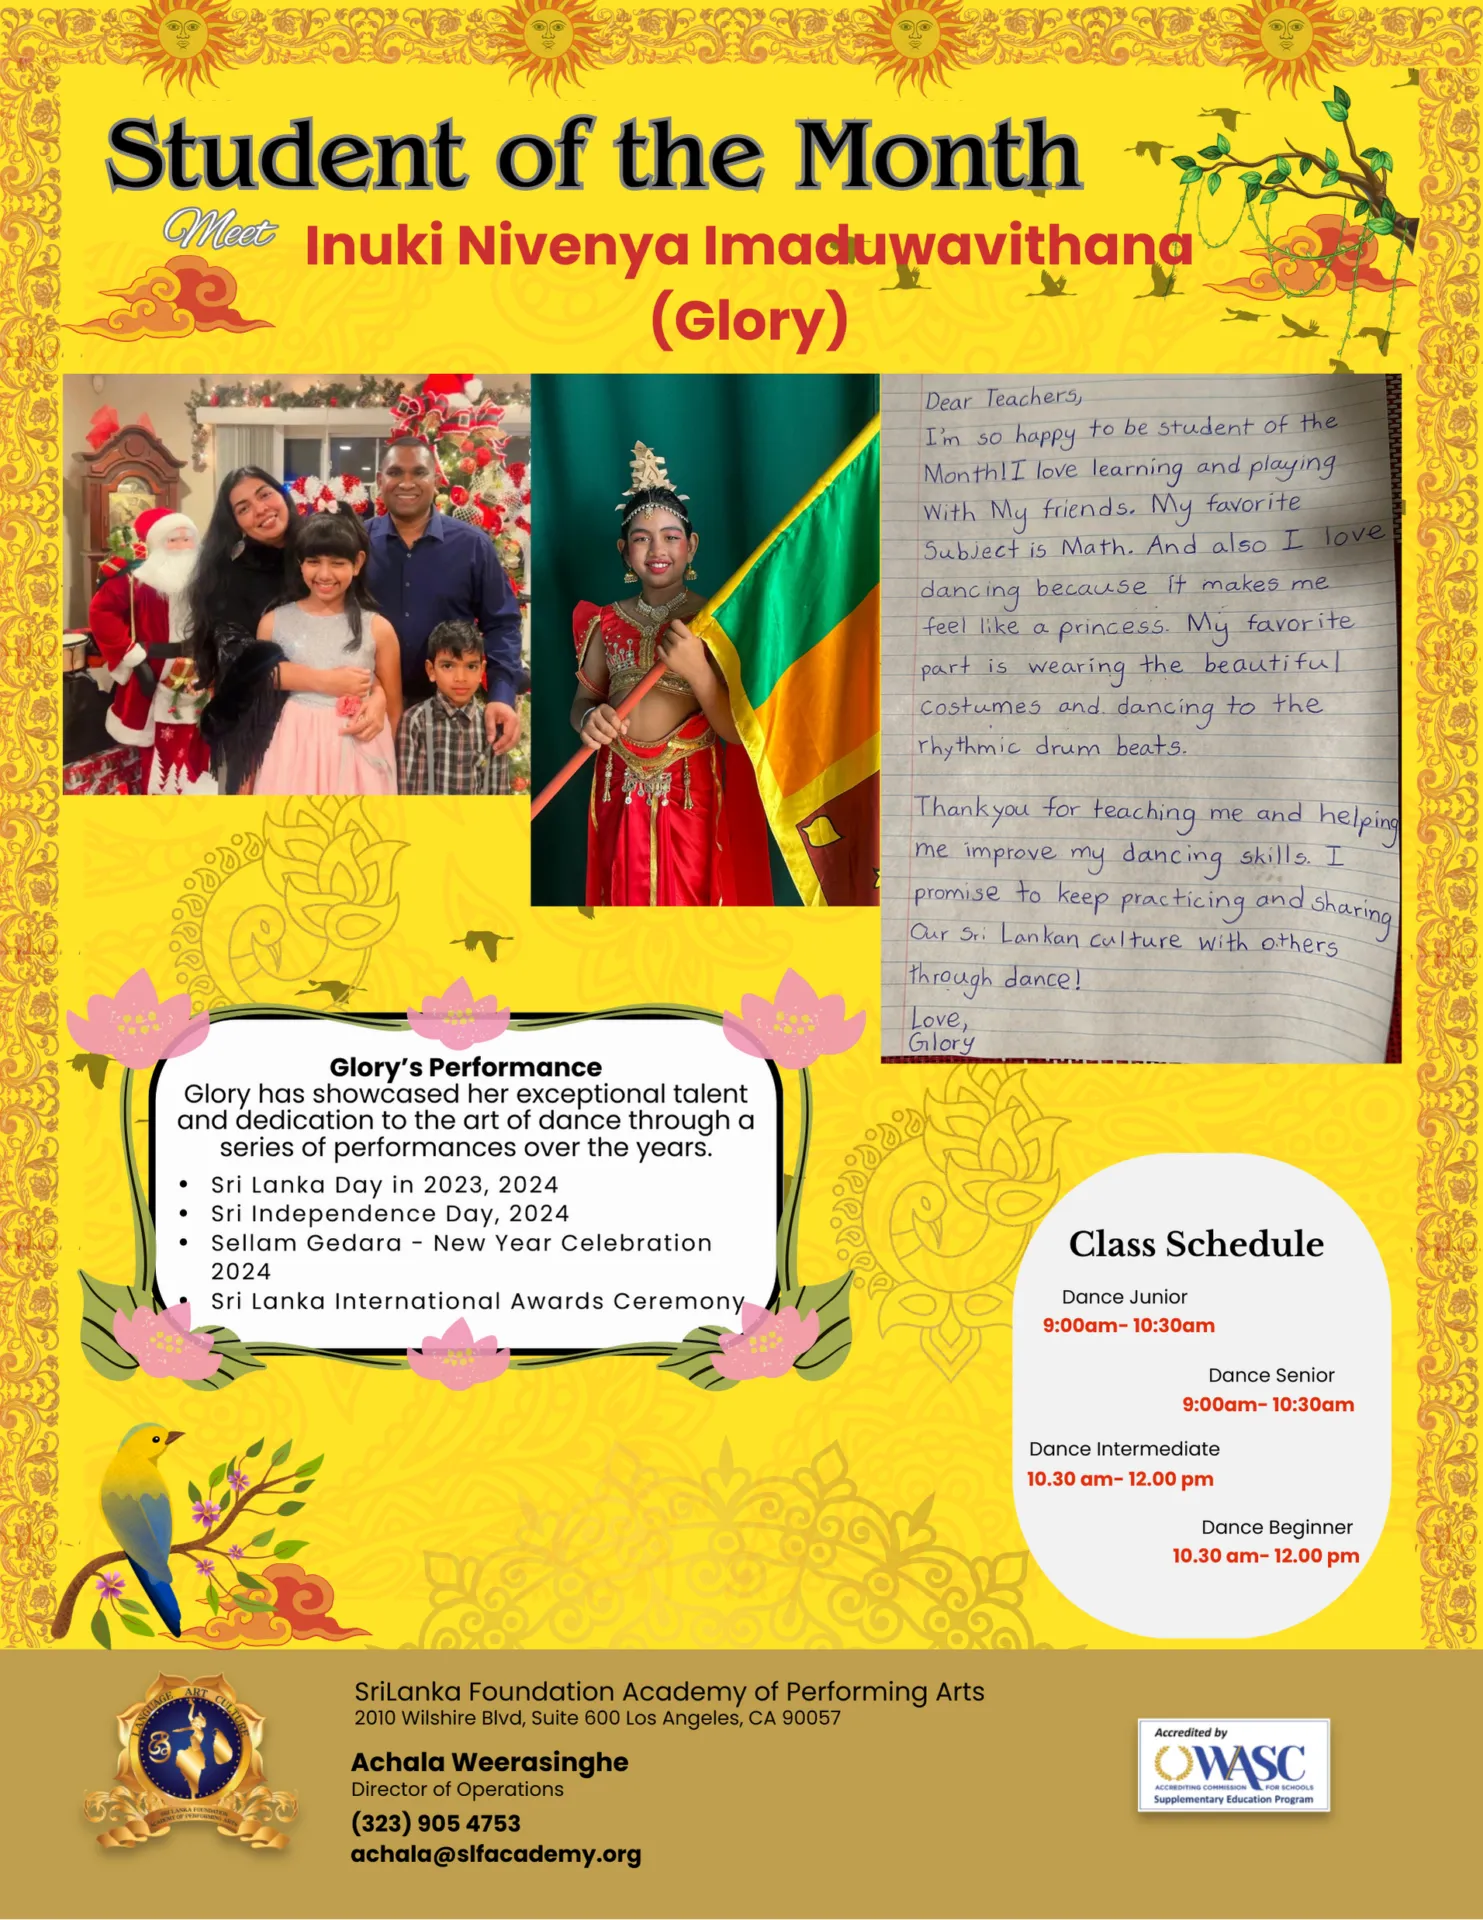 Student of the Month
Meet
Inuki Nivenya Imaduwavithana
(Glory)
Dear Teachers,
I'm so happy to be student of the
Month! I love learning and playing
With My friends. My favorite
Subject is Math. And also I love
dancing because it makes me
feel like a princess. My favorite
part is wearing the beautiful
costumes and dancing to the
rhythmic drum beats.
Thank you for teaching me and helping
me improve my dancing skills. I
promise to keep practicing and sharing
Our Sri Lankan culture with others
through dance!
Love,
Glory
Glory's Performance
Glory has showcased her exceptional talent
and dedication to the art of dance through a
series of performances over the years.
• Sri Lanka Day in 2023, 2024
• Sri Independence Day, 2024
• Sellam Gedara - New Year Celebration
2024
• Sri Lanka International Awards Ceremony
Class Schedule
Dance Junior
9:00am- 10:30am
Dance Senior
9:00am- 10:30am
Dance Intermediate
10.30 am- 12.00 pm
Dance Beginner
10.30 am- 12.00 pm
LANGUAGE ART CULTURE
SRI LANKA FOUNDATION
ACADEMY OF PERFORMING ARTS
SriLanka Foundation Academy of Performing Arts
2010 Wilshire Blvd, Suite 600 Los Angeles, CA 90057
Achala Weerasinghe
Director of Operations
(323) 905 4753
achala@slfacademy.org
Accredited by
WASC
ACCREDITING COMMISSION FOR SCHOOLS
Supplementary Education Program